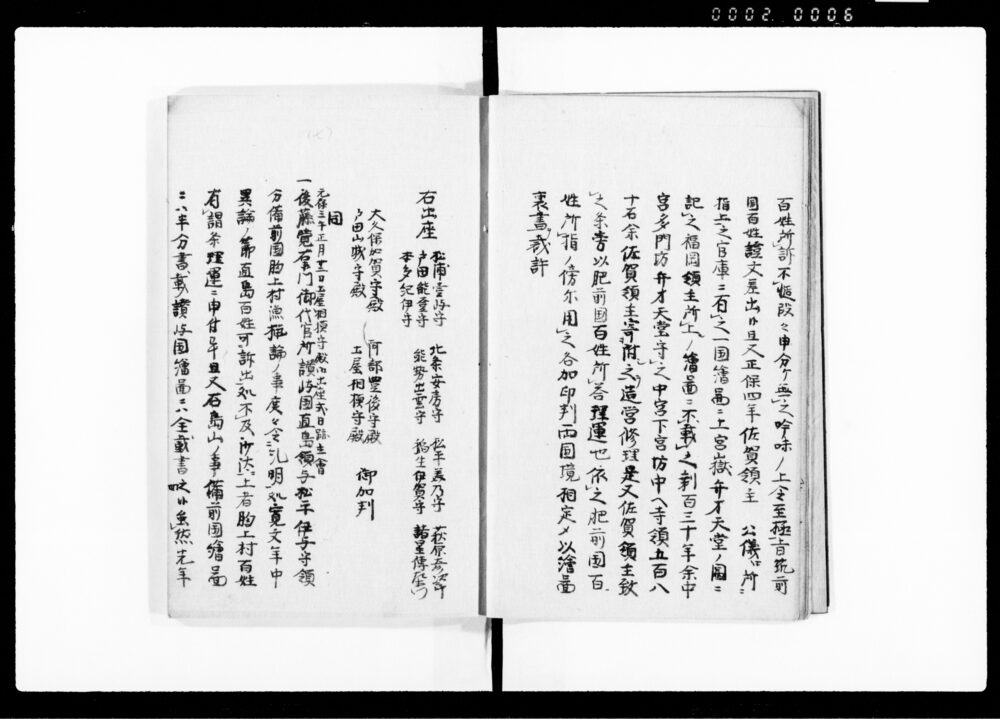 0002 0006
百姓所訴不慥段々申分ケ無之吟味ノ上令至極旨筑前
国百姓證文差出ﾄ且又正保四年佐賀領主 公儀江所
指上之官庫ニ石之一国繪圖ニ上宮嶽弁才天堂ノ圖ニ
記之福岡領主所上ノ繪圖ニ不載之剰百三十年余中
宮多門坊弁才天堂守之中宮下宮坊中へ寺領五百八
十石余佐賀領主寄附之造営修理是又佐賀領主致
之条旁以肥前国百姓所答理運也依之肥前国百
姓所指ノ傍尓用之各加印判両国境相定メ以繪圖
裏書裁許
右出座
松浦壱岐守 北条安房守 松平美乃守 萩原彦次郎
戸田能登守 能勢出雲守 稲生伊賀守 諸星傳左衛門
本多紀伊守
大久保加賀守殿 阿部豊後守殿
戸田山城守殿 土屋相模守殿 御加判
元禄
同
一後藤覚右衛門御代官所讃岐国直島領与松平伊予守領
分備前国胸上村漁猟論ノ事度々令糺明処寛文年中
異論ノ節直島百姓可訴出処不及沙汰上者胸上村百姓
有謂条理運ニ申付畢且又石島山ノ事備前国繪圖
ニハ半分書載讃岐国繪圖ニハ全載書之ﾄ雖然先年